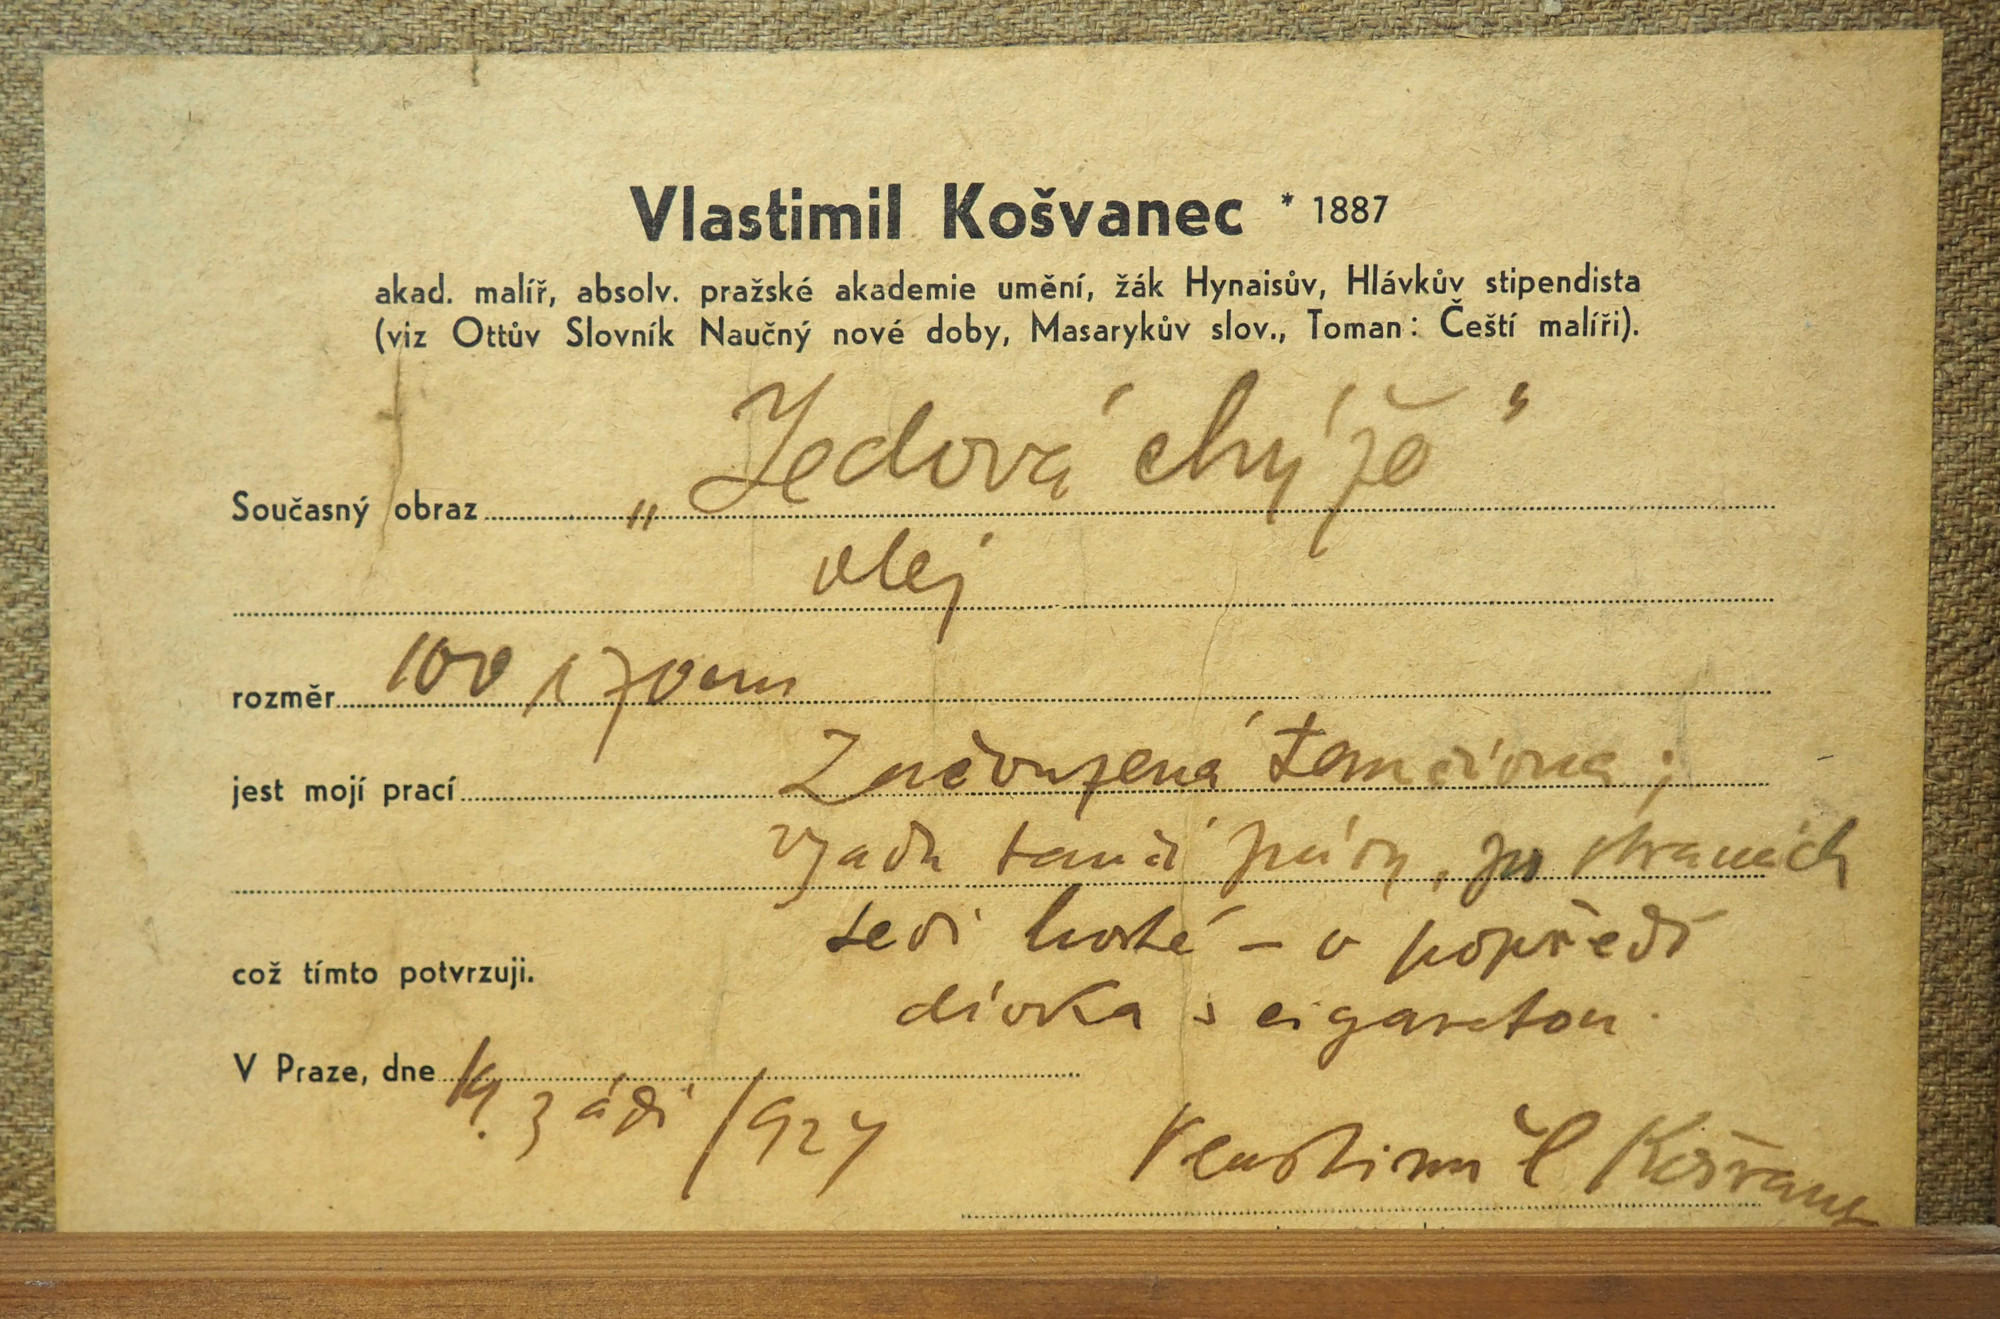 Vlastimil Košvanec * 1887
akad. malíř, absolv. pražské akademie umění, žák Hynaisův, Hlávkův stipendista
(viz Ottův Slovník Naučný nové doby, Masarykův slov., Toman: Čeští malíři).
Současný obraz „Jedová chýže“
olej
rozměr 100 x 70 cm
jest mojí prací Začouzená tančírna;
vzadu tančí páry, po stranách
sedí hosté – v popředí
což tímto potvrzuji.
dívka s cigaretou.
V Praze, dne 19. září 1927
Vlastimil Košvanec